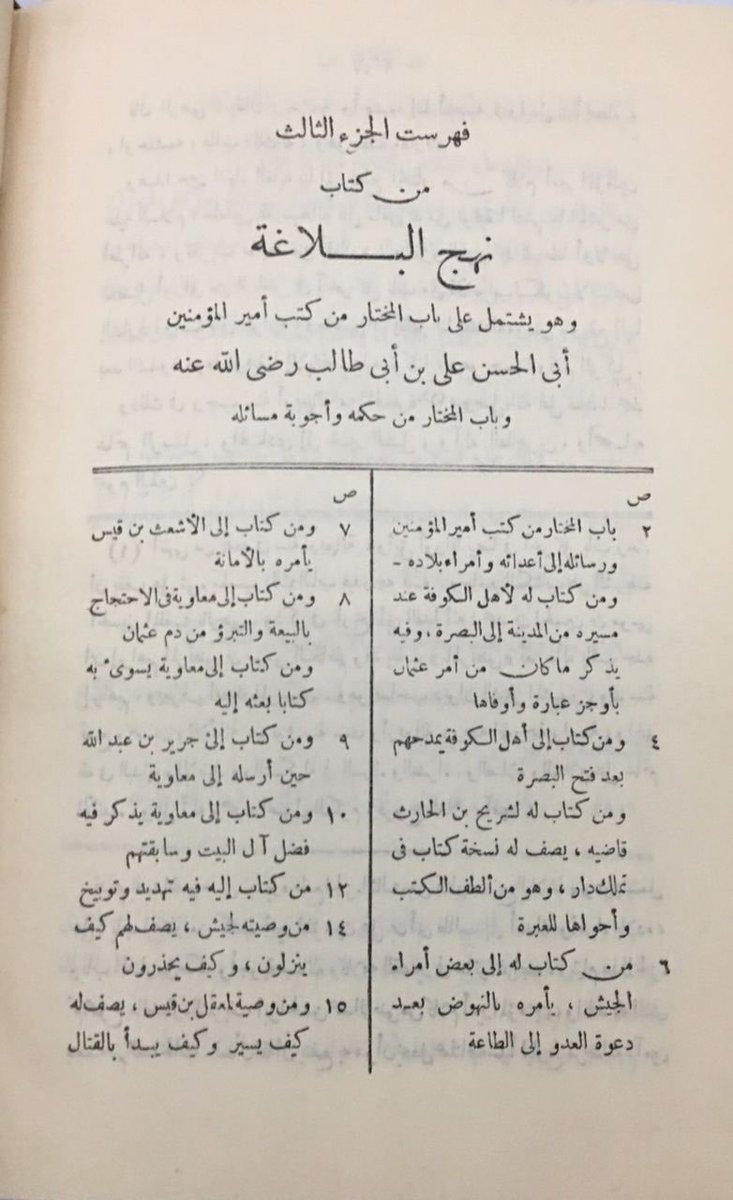 فهرست الجزء الثالث
من كتاب
نهج البلاغة
وهو يشتمل على باب المختار من كتب أمير المؤمنين
أبى الحسن على بن أبى طالب رضى الله عنه
وباب المختار من حكمه وأجوبة مسائله
ص
٢ باب المختار من كتب أمير المؤمنين
ورسائله إلى أعدائه وأمراء بلاده -
ومن كتاب له لأهل الكوفة عند
مسيره من المدينة إلى البصرة، وفيه
يذكر ما كان من أمر عثمان
بأوجز عبارة وأوفاها
٤ ومن كتاب إلى أهل الكوفة يمدحهم
بعد فتح البصرة
ومن كتاب له لشريح بن الحارث
قاضيه، يصف له نسخة كتاب فى
تملك دار، وهو من ألطف الكتب
وأحواها للعبرة
٦ من كتاب له إلى بعض أمراء
الجيش، يأمره بالنهوض بعيد
دعوة العدو إلى الطاعة
ص
٧ ومن كتاب إلى الأشعث بن قيس
يأمره بالأمانة
٨ ومن كتاب إلى معاوية فى الاحتجاج
بالبيعة والتبرؤ من دم عثمان
ومن كتاب إلى معاوية يسوىء به
كتابا بعثه إليه
٩ ومن كتاب إلى جرير بن عبد الله
حين أرسله إلى معاوية
١٠ ومن كتاب إلى معاوية يذكر فيه
فضل آل البيت وسابقتهم
١٢ من كتاب إليه فيه تهديد وتوبيخ
١٤ من وصيته لجيش، يصف لهم كيف
ينزلون، وكيف يحذرون
١٥ ومن وصية لمعقل بن قيس، يصف له
كيف يسير وكيف يبدأ بالقتال